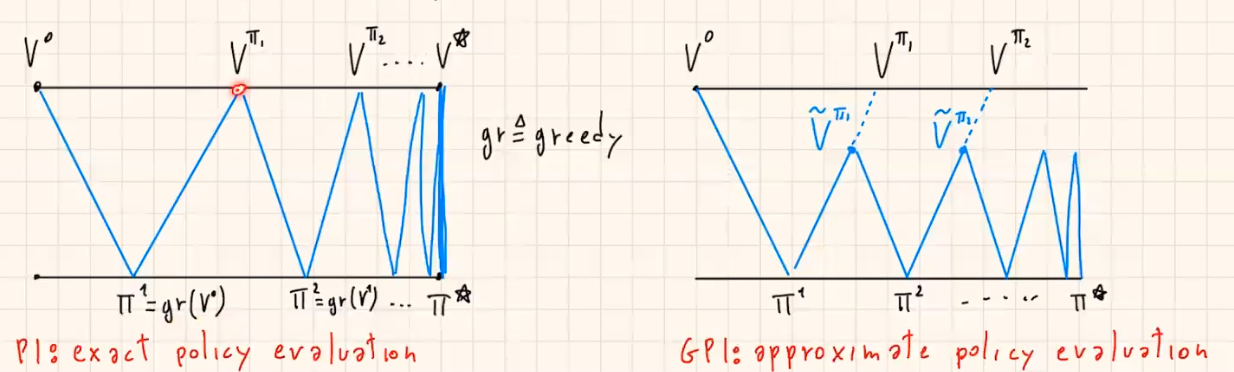 V⁰ V^π₁ V^π₂ .... V^☆
gr ≜ greedy
π¹=gr(V⁰) π²=gr(V¹) ... π^☆
PI: exact policy evaluation
V⁰ V^π₁ V^π₂
Ṽ^π₁ Ṽ^π₂
π¹ π² ..... π^☆
GPI: approximate policy evaluation